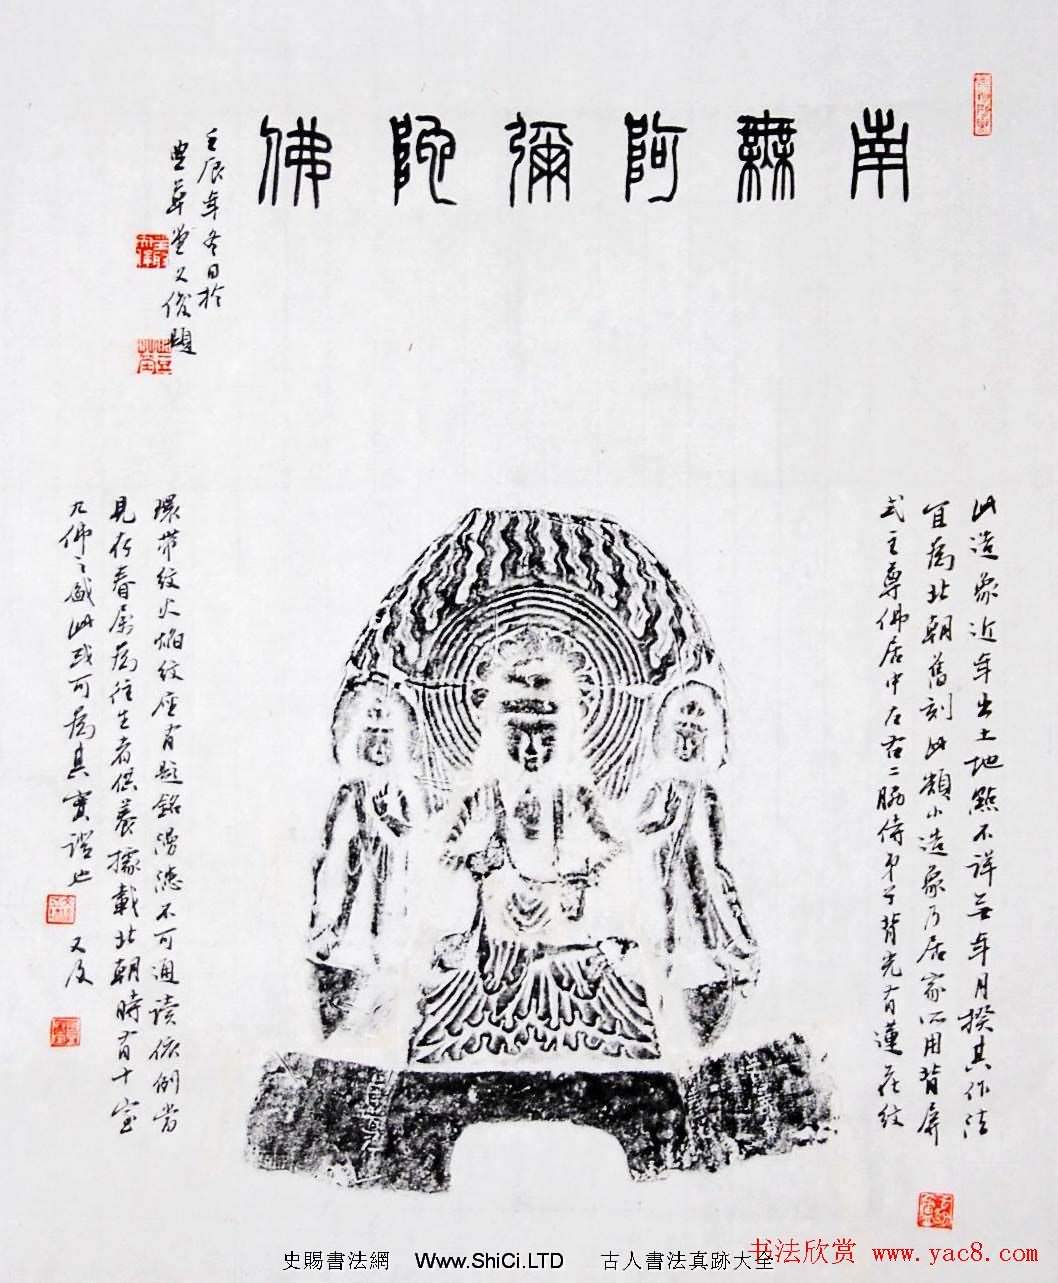 南無阿彌陀佛
壬辰年冬日於
曲華堂文俊題
此造象近年出土地點不詳無年月揆其作法
宜為北朝舊刻此類小造象乃居家所用背屏
式主尊佛居中左右二脇侍弟子背光有蓮花紋
環帶紋火焰紋座有題銘漫漶不可通讀依例當
見存眷屬為往生者供養據載北朝時有十室
九佛之盛此或可為其實證也
又及
史賜書法網 Www.ShiCi.LTD 古人書法真跡大全
书法欣赏 www.yac8.com